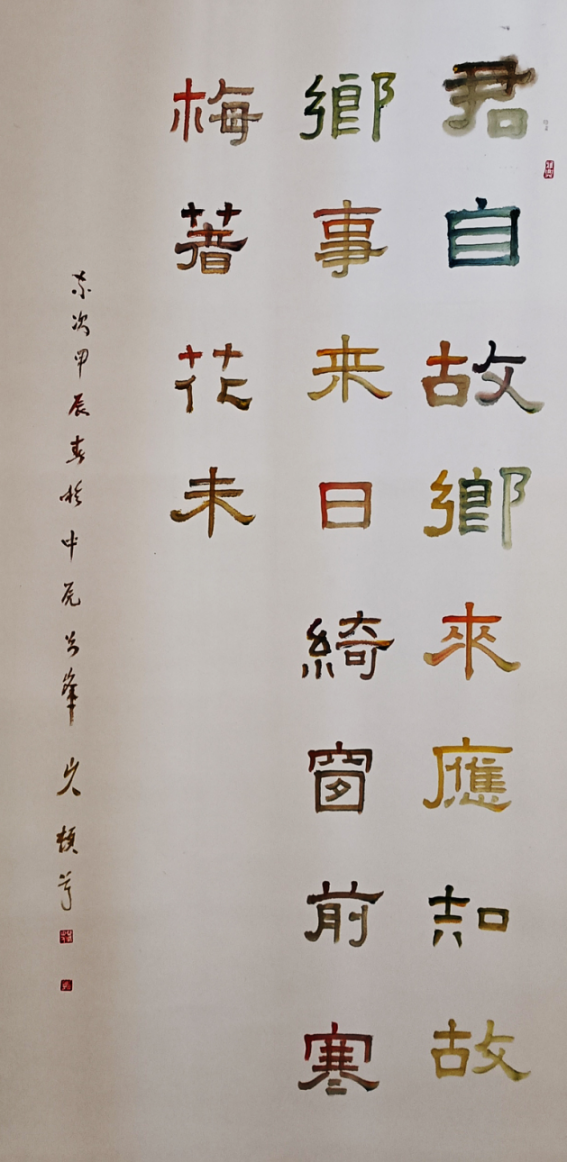 君自故鄉來應知故
鄉事来日綺窗前寒
梅著花未
次甲辰春於中